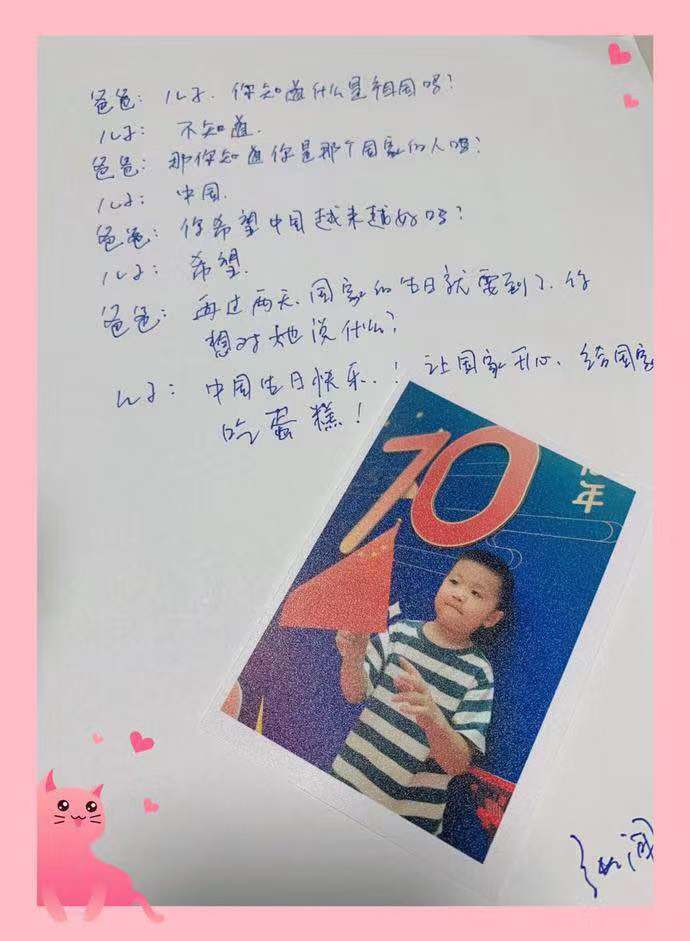 爸爸：儿子，你知道什么是祖国吗？
儿子：不知道．
爸爸：那你知道你是那个国家的人吗？
儿子：中国．
爸爸：你希望中国越来越好吗？
儿子：希望．
爸爸：再过两天，国家的生日就要到了．你
想对她说什么？
儿子：中国生日快乐．！让国家开心、给国家
吃蛋糕！
70
年